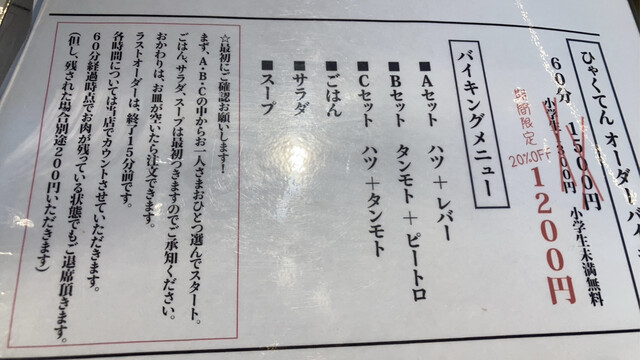 ひゃくてん オーダーバイキ
60分 1500円 小学生未満無料
小学生 300円
期間限定 20%OFF 1200円
バイキングメニュー
■Aセット ハツ+レバー
■Bセット タンモト+ピートロ
■Cセット ハツ+タンモト
■ごはん
■サラダ
■スープ
☆最初にご確認お願いします!
まず、A・B・Cの中からお一人さまおひとつ選んでスタート。
ごはん、サラダ、スープは最初つきますのでご承知ください。
おかわりは、お皿が空いたら注文できます。
ラストオーダーは、終了15分前です。
各時間については当店でカウントさせていただきます。
60分経過時点でお肉が残っている状態でもご退席頂きます。
(但し、残された場合別途200円いただきます)